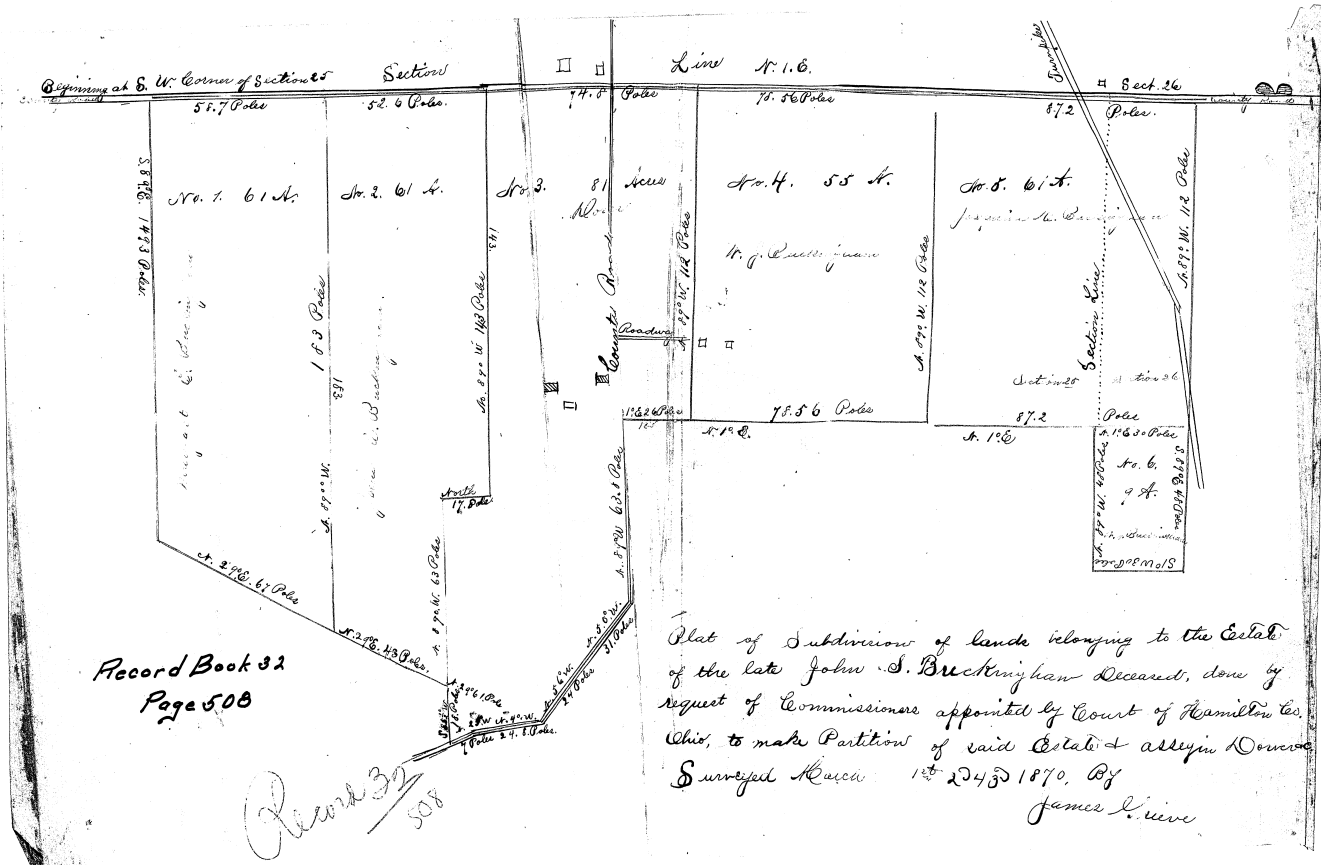 Beginning at S. W. Corner of Section 25 Section Line N. 1. E.
Turnpike
Sect. 26
County Road
58.7 Poles
52.6 Poles.
74.8 Poles
78.56 Poles
87.2 Poles.
S. 89° E. 149.3 Poles.
No. 1. 61 A.
No. 2. 61 A.
No. 3. 81 Acres
Dower
No. 4. 55 A.
No. 5. 61 A.
183 Poles
183
N. 89° W.
143
N. 89° W 143 Poles
County Road
Roadway
N. 89° W. 112 Poles
N. 89° W. 112 Poles
N. 89° W. 112 Poles
Section Line
Section 25
Section 26
1° E 26 Poles
78.56 Poles
N. 1° E.
87.2 Poles
N. 1° E
N. 1° E 30 Poles
No. 6.
9 A.
N. 89° W. 48 Poles
S. 89° E 48 Poles
S 1° W 30 Poles
North
17. Poles
N. 89° W. 63 Poles
N. 89° W 63.8 Poles
N. 29° E. 67 Poles
N. 29° E. 43 Poles.
N. 29° E 1 Pole
N. 50° W.
31. Poles
N. 56° W.
24 Poles
7 Poles 24.8 Poles.
Record Book 32
Page 508
Record 32
508
Plat of Subdivision of lands belonging to the Estate
of the late John S. Buckingham Deceased, done by
request of Commissioners appointed by Court of Hamilton Co.
Ohio, to make Partition of said Estate & assign Dower
Surveyed March 1st 2d & 3d 1870, By
James Grieve